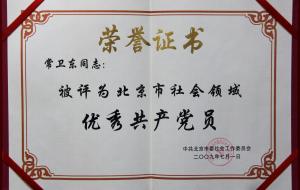 荣誉证书
常卫东同志：
被评为北京市社会领域
优秀共产党员
中共北京市委社会工作委员会
二〇〇九年七月一日